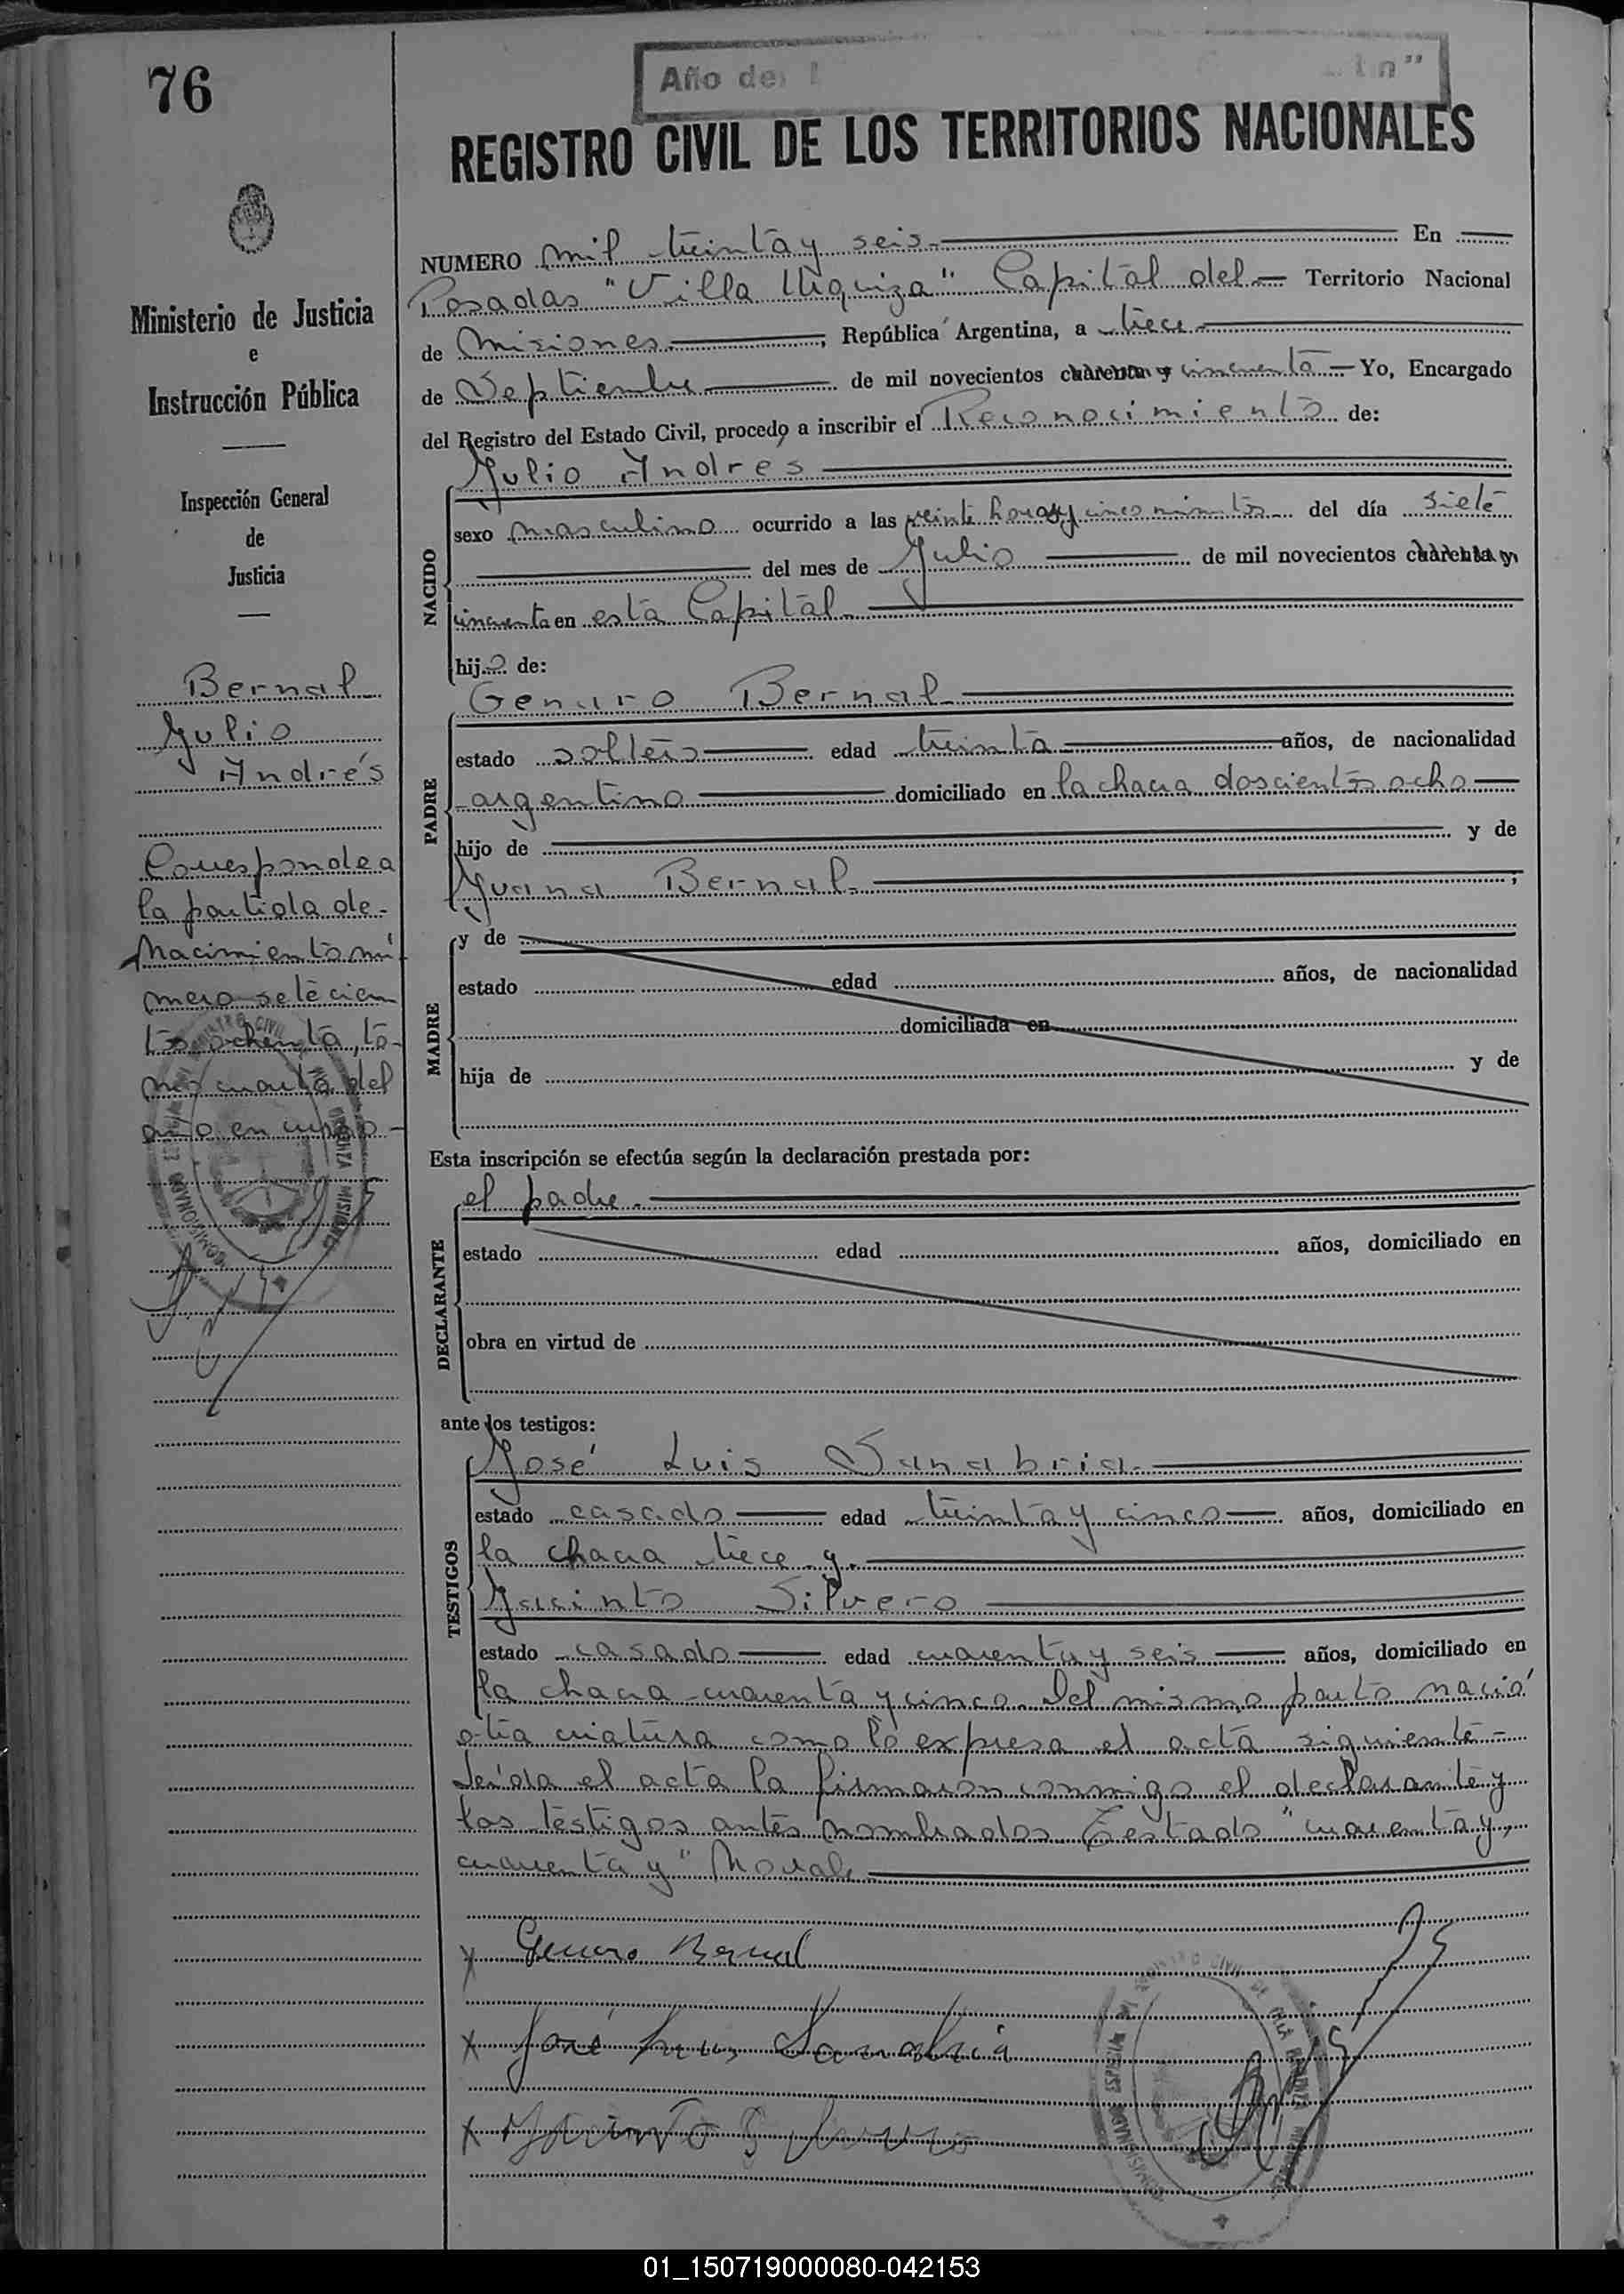 76
Año de
n"
REGISTRO CIVIL DE LOS TERRITORIOS NACIONALES
Ministerio de Justicia
e
Instrucción Pública
Inspección General
de
Justicia
Bernal
Julio
Andrés
Corresponde a
la partida de
Nacimiento nú-
mero setecien
tos ochenta, to-
mo cuarto del
año en curso
NUMERO mil treinta y seis En
Posadas "Villa Urquiza" Capital del Territorio Nacional
de Misiones, República Argentina, a trece
de Septiembre de mil novecientos cuarenta y cincuenta Yo, Encargado
del Registro del Estado Civil, procedo a inscribir el Reconocimiento de:
NACIDO
Julio Andrés
sexo masculino ocurrido a las veinte horas y cinco minutos del día siete
del mes de Julio de mil novecientos cuarenta y
cincuenta en esta Capital
hijo de:
PADRE
Genaro Bernal
estado soltero edad treinta años, de nacionalidad
argentino domiciliado en la chacra doscientos ocho
hijo de y de
Juana Bernal ;
MADRE
y de
estado edad años, de nacionalidad
domiciliada en
hija de y de
Esta inscripción se efectúa según la declaración prestada por:
DECLARANTE
el padre.
estado edad años, domiciliado en
obra en virtud de
ante los testigos:
TESTIGOS
José Luis Sanabria
estado casado edad treinta y cinco años, domiciliado en
la chacra trece y
Jacinto Silvero
estado casado edad cuarenta y seis años, domiciliado en
la chacra cuarenta y cinco. Del mismo parto nació
otra criatura como lo expresa el acta siguiente-
Leída el acta la firmaron conmigo el declarante y
los testigos antes nombrados. Testado "cuarenta y,
cuarenta y" Novale
x Genaro Bernal
x José Luis Sanabria
x Jacinto Silvero
REGISTRO CIVIL DE VILLA URQUIZA MISIONES
COMISIONADO ESPECIAL
01_150719000080-042153